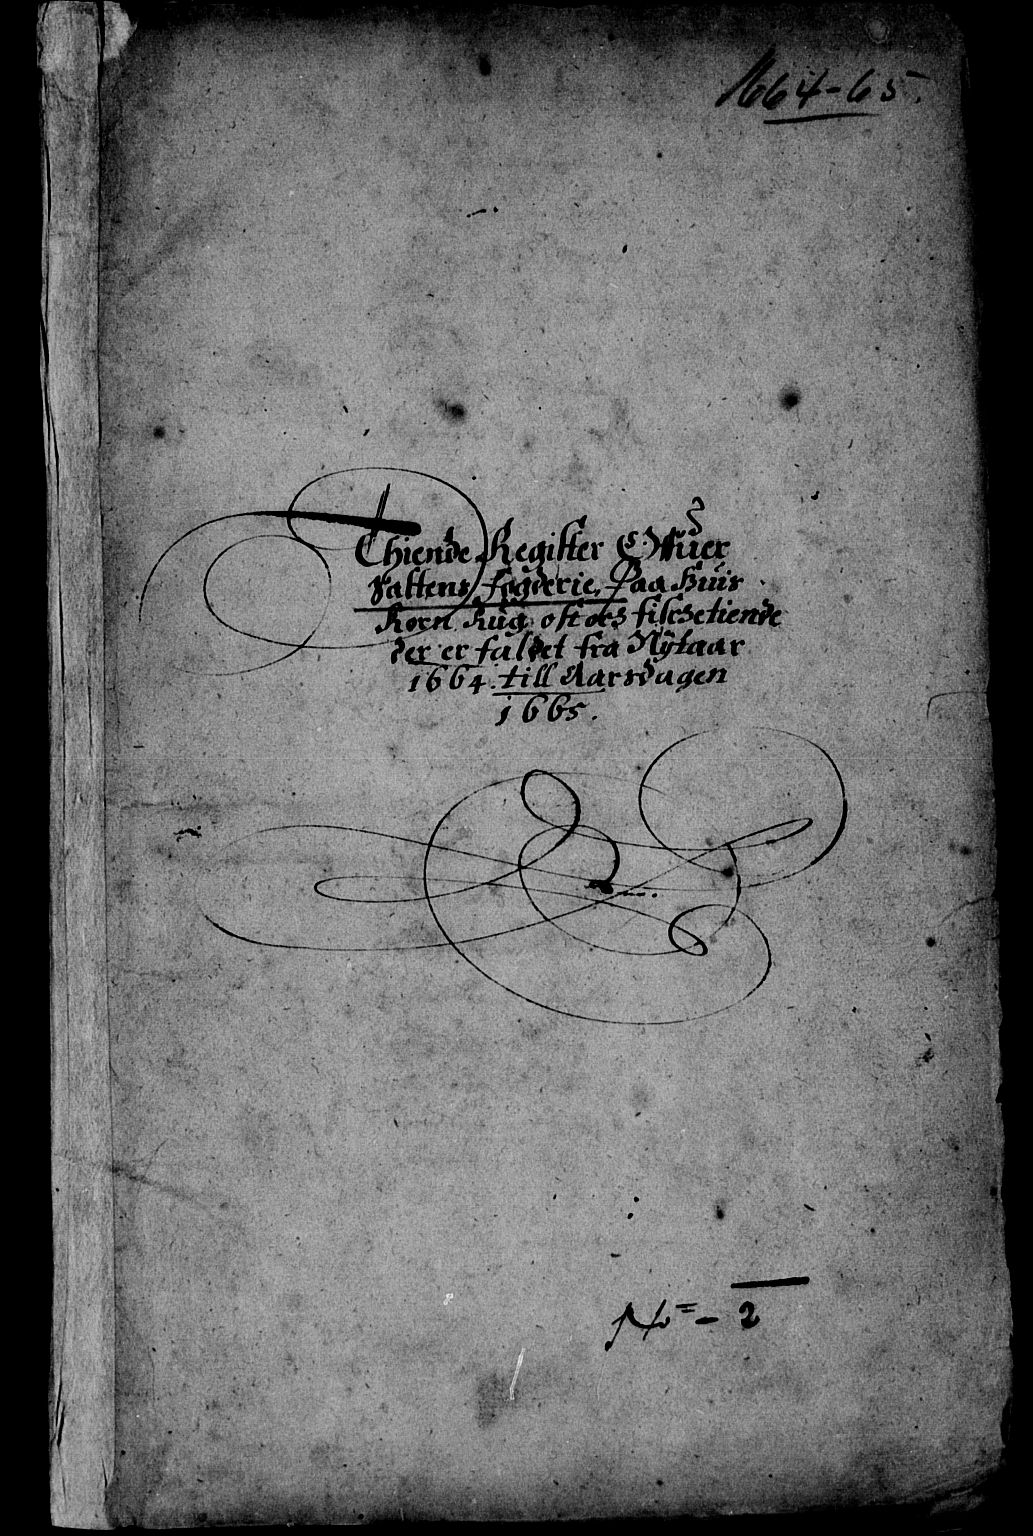 1664-65.
Thiende Register Offuer
Saltens fogderie, Paa huis
Korn Rug ost och fischetiende
der er faldet fra Nÿtaar
1664. till Aarsdagen
1665.
No= - 2